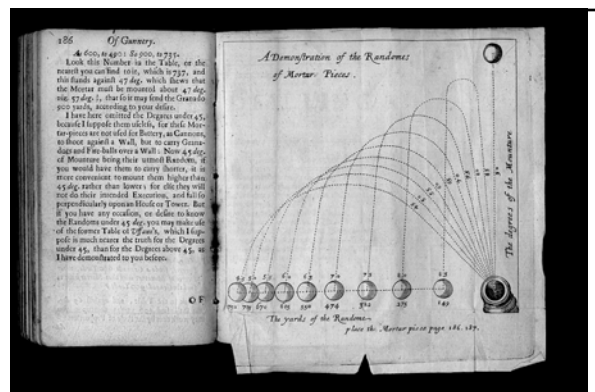 186 Of Gunnery.
As 600, to 490: So 900, to 735.
Look this Number in the Table, or the
nearest you can find to it, which is 737, and
this stands against 47 deg. which shews that
the Mortar must be mounted about 47 deg.
900 yards, according to your desire.
I have here omitted the Degrees under 45,
because I suppose them useless, for these Mor-
tar-pieces are not used for Battery, as Cannons,
to shoot against a Wall, but to carry Grana-
does and Fire-balls over a Wall: Now 45 deg.
of Mounture being their utmost Random, if
you would have them to carry shorter, it is
more convenient to mount them higher than
45 deg. rather than lower: for else they will
not do their intended Execution, and fall so
perpendicularly upon an House or Tower. But
if you have any occasion, or desire to know
the Randoms under 45 deg. you may make use
of the former Table of Diffant's, which I sup-
pose is much nearer the truth for the Degrees
under 45, than for the Degrees above 45, as
I have demonstrated to you before.
OF
A Demonstration of the Randomes
of Mortar Pieces.
The degrees of the Mounture
474 502 149
The yards of the Randome
place the Mortar piece page 186. 187.